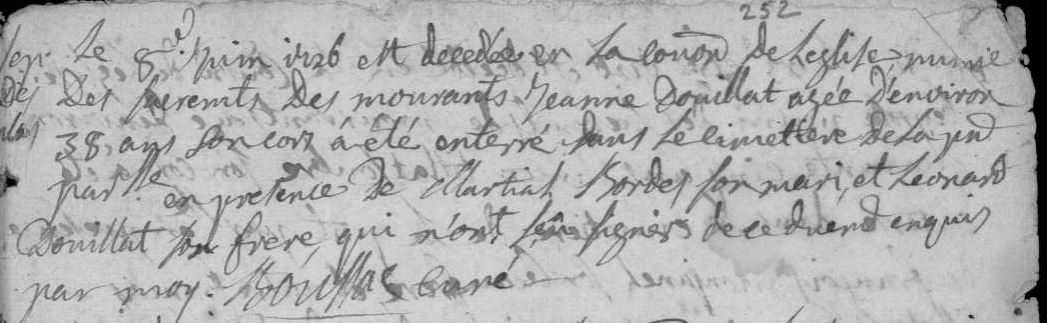 252
Le 8e Juin 1726 est decedée en la comon de Leglise munie
des Des sacremts des mourants Jeanne Douillat agée d'environ
38 ans son cors á été enterré dans Le cimettere de La pnd
parsse en presence De Martial Bordes son mari, et Leonard
Douillat son frere, qui n'ont sçu signer de ce duemd enquis
par moy. curé